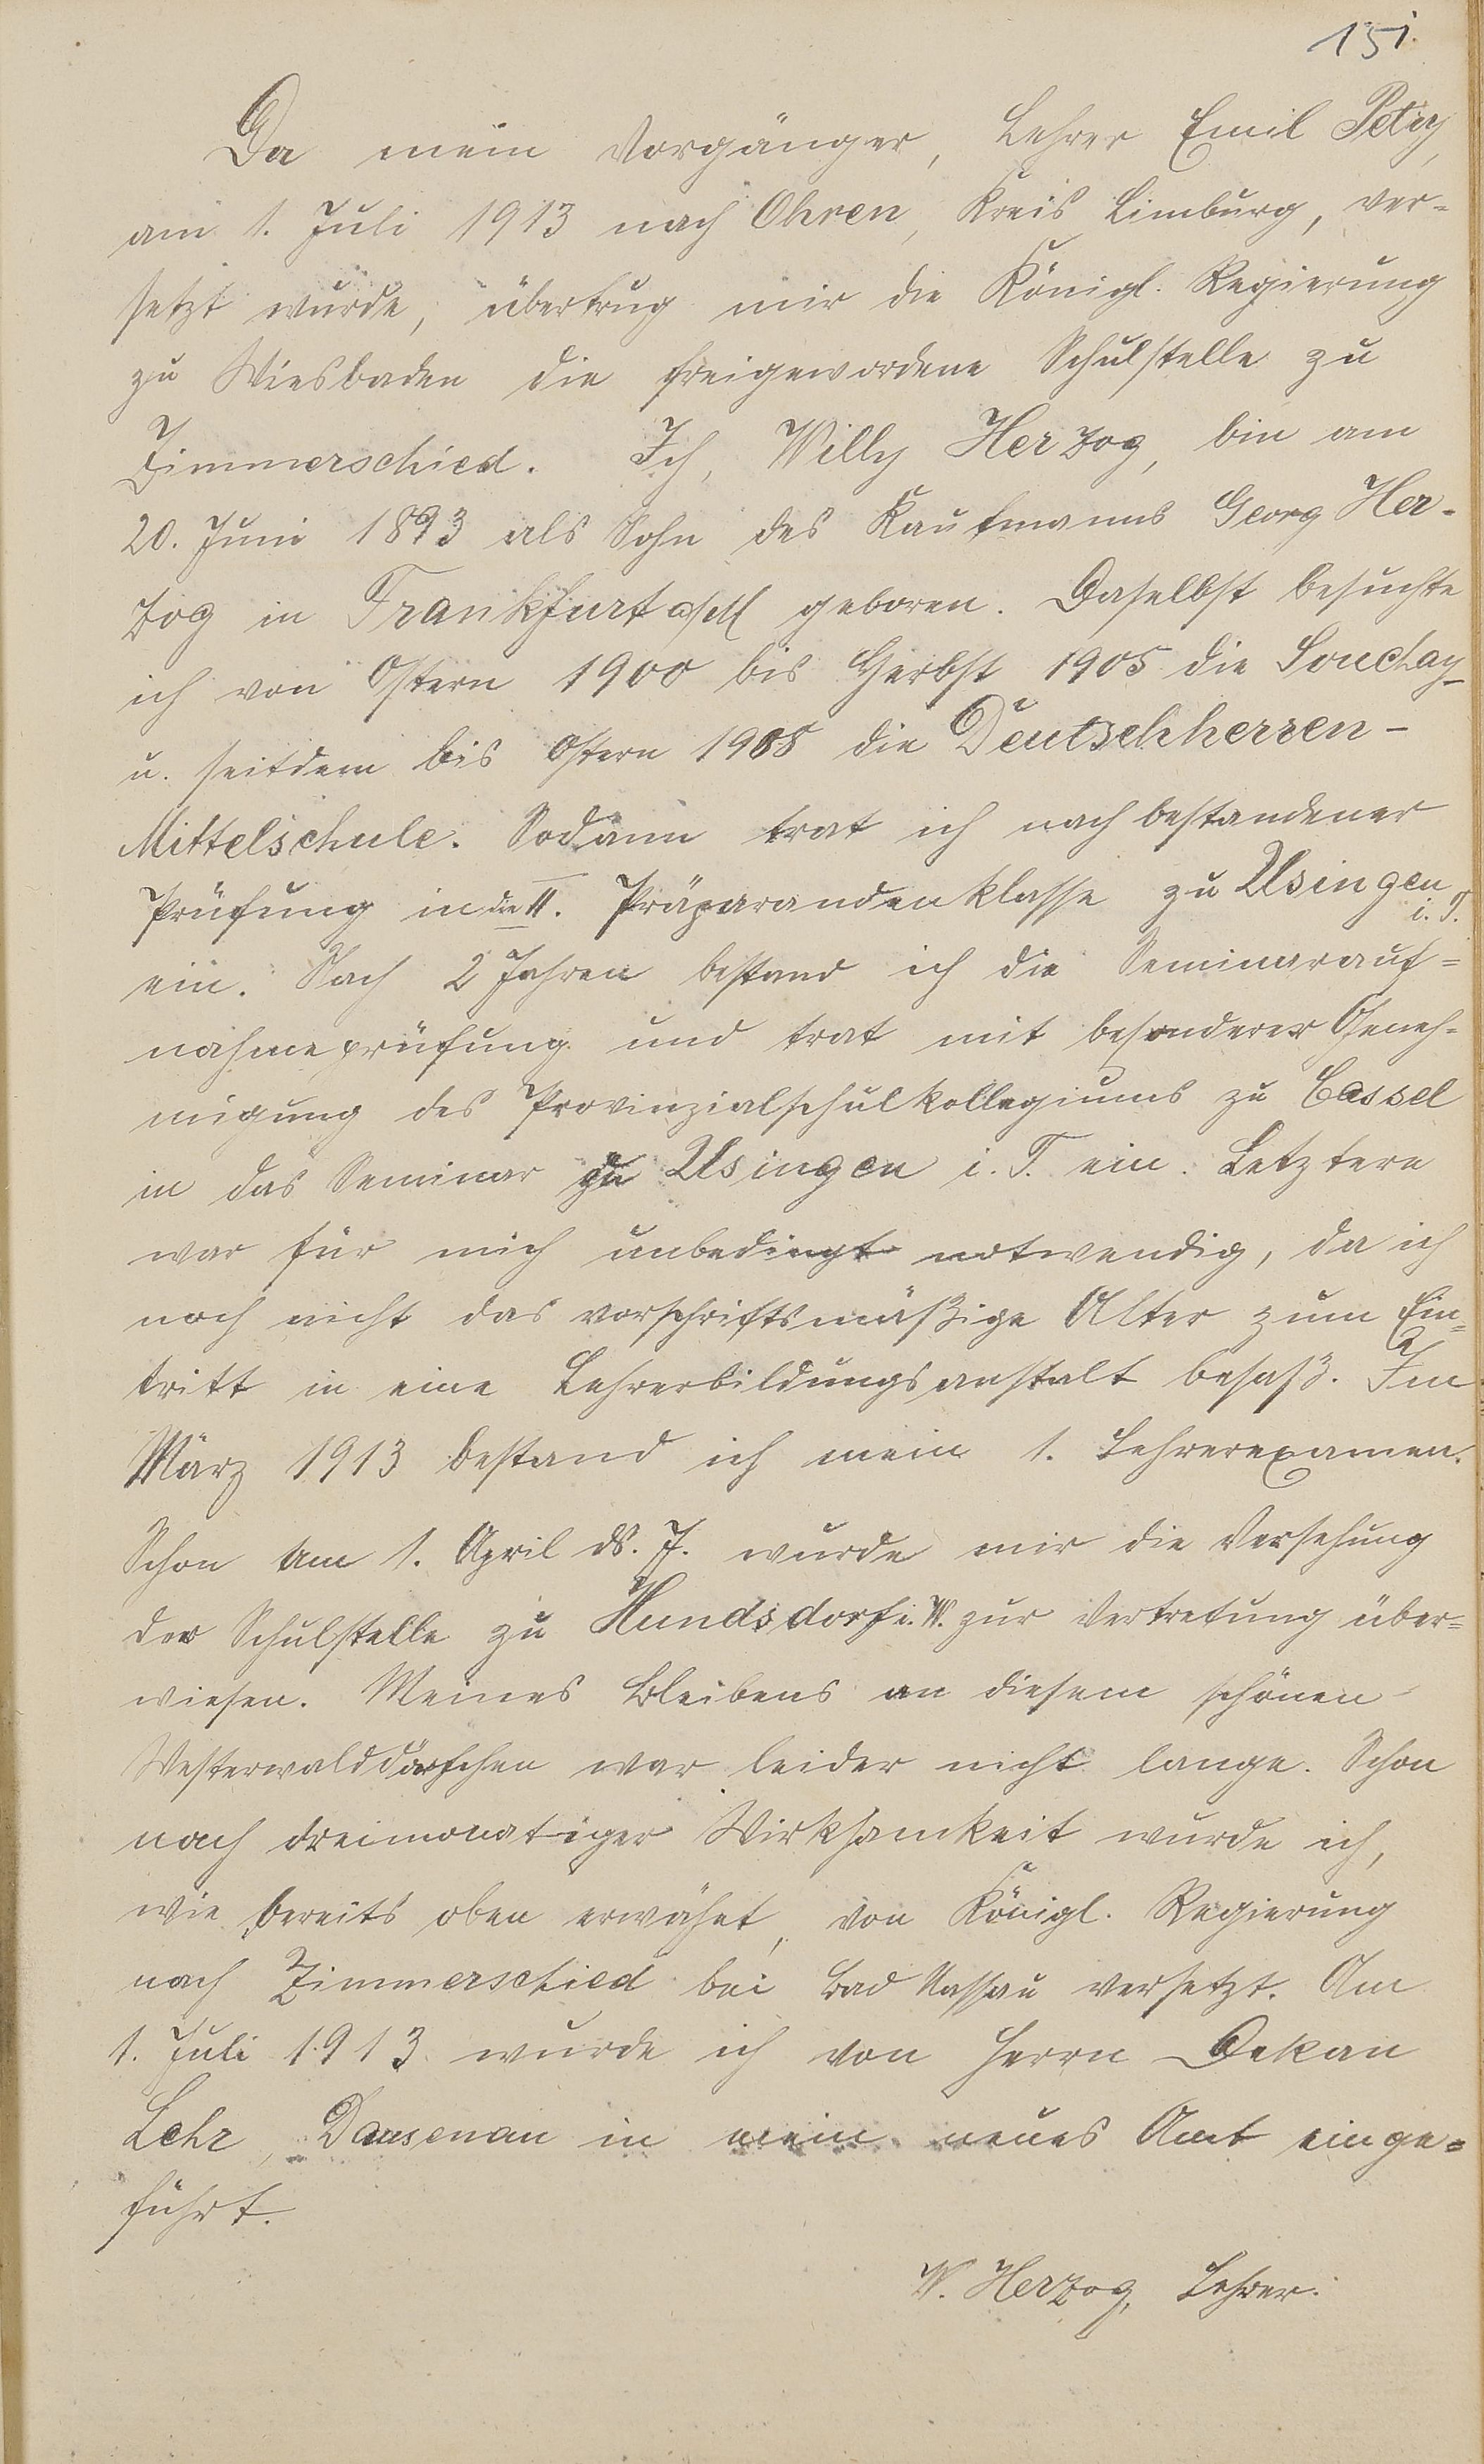 151.
Da mein Vorgänger, Lehrer Emil Petry,
am 1. Juli 1913 nach Ohren, Kreis Limburg, ver-
setzt wurde, übertrug mir die Königl. Regierung
zu Wiesbaden die freigewordene Schulstelle zu
Zimmerschied. Ich, Willy Herzog, bin am
20. Juni 1893 als Sohn des Kaufmanns Georg Her-
zog in Frankfurt a/M geboren. Daselbst besuchte
ich von Ostern 1900 bis Herbst 1905 die Souchay-
u. seitdem bis Ostern 1908 die Deutschherren-
Mittelschule. Sodann trat ich nach bestandener
Prüfung in die II. Präparandenklasse zu Usingen i. T.
ein. Nach 2 Jahren bestand ich die Seminarauf-
nahmeprüfung und trat mit besonderer Geneh-
migung des Provinzialschulkollegiums zu Cassel
in das Seminar zu Usingen i. T. ein. Letztere
war für mich unbedingt notwendig, da ich
noch nicht das vorschriftsmäßige Alter zum Ein-
tritt in eine Lehrerbildungsanstalt besaß. Im
März 1913 bestand ich mein 1. Lehrerexamen.
Schon am 1. April ds. J. wurde mir die Versehung
der Schulstelle zu Hundsdorf i. W. zur Vertretung über-
wiesen. Meines Bleibens an diesem schönen
Westerwalddörfchen war leider nicht lange. Schon
nach dreimonatiger Wirksamkeit wurde ich,
wie bereits oben erwähnt, von Königl. Regierung
nach Zimmerschied bei Bad Nassau versetzt. Am
1. Juli 1913 wurde ich von Herrn Dekan
Lehr, Dausenau in mein neues Amt einge-
führt.
W. Herzog, Lehrer.